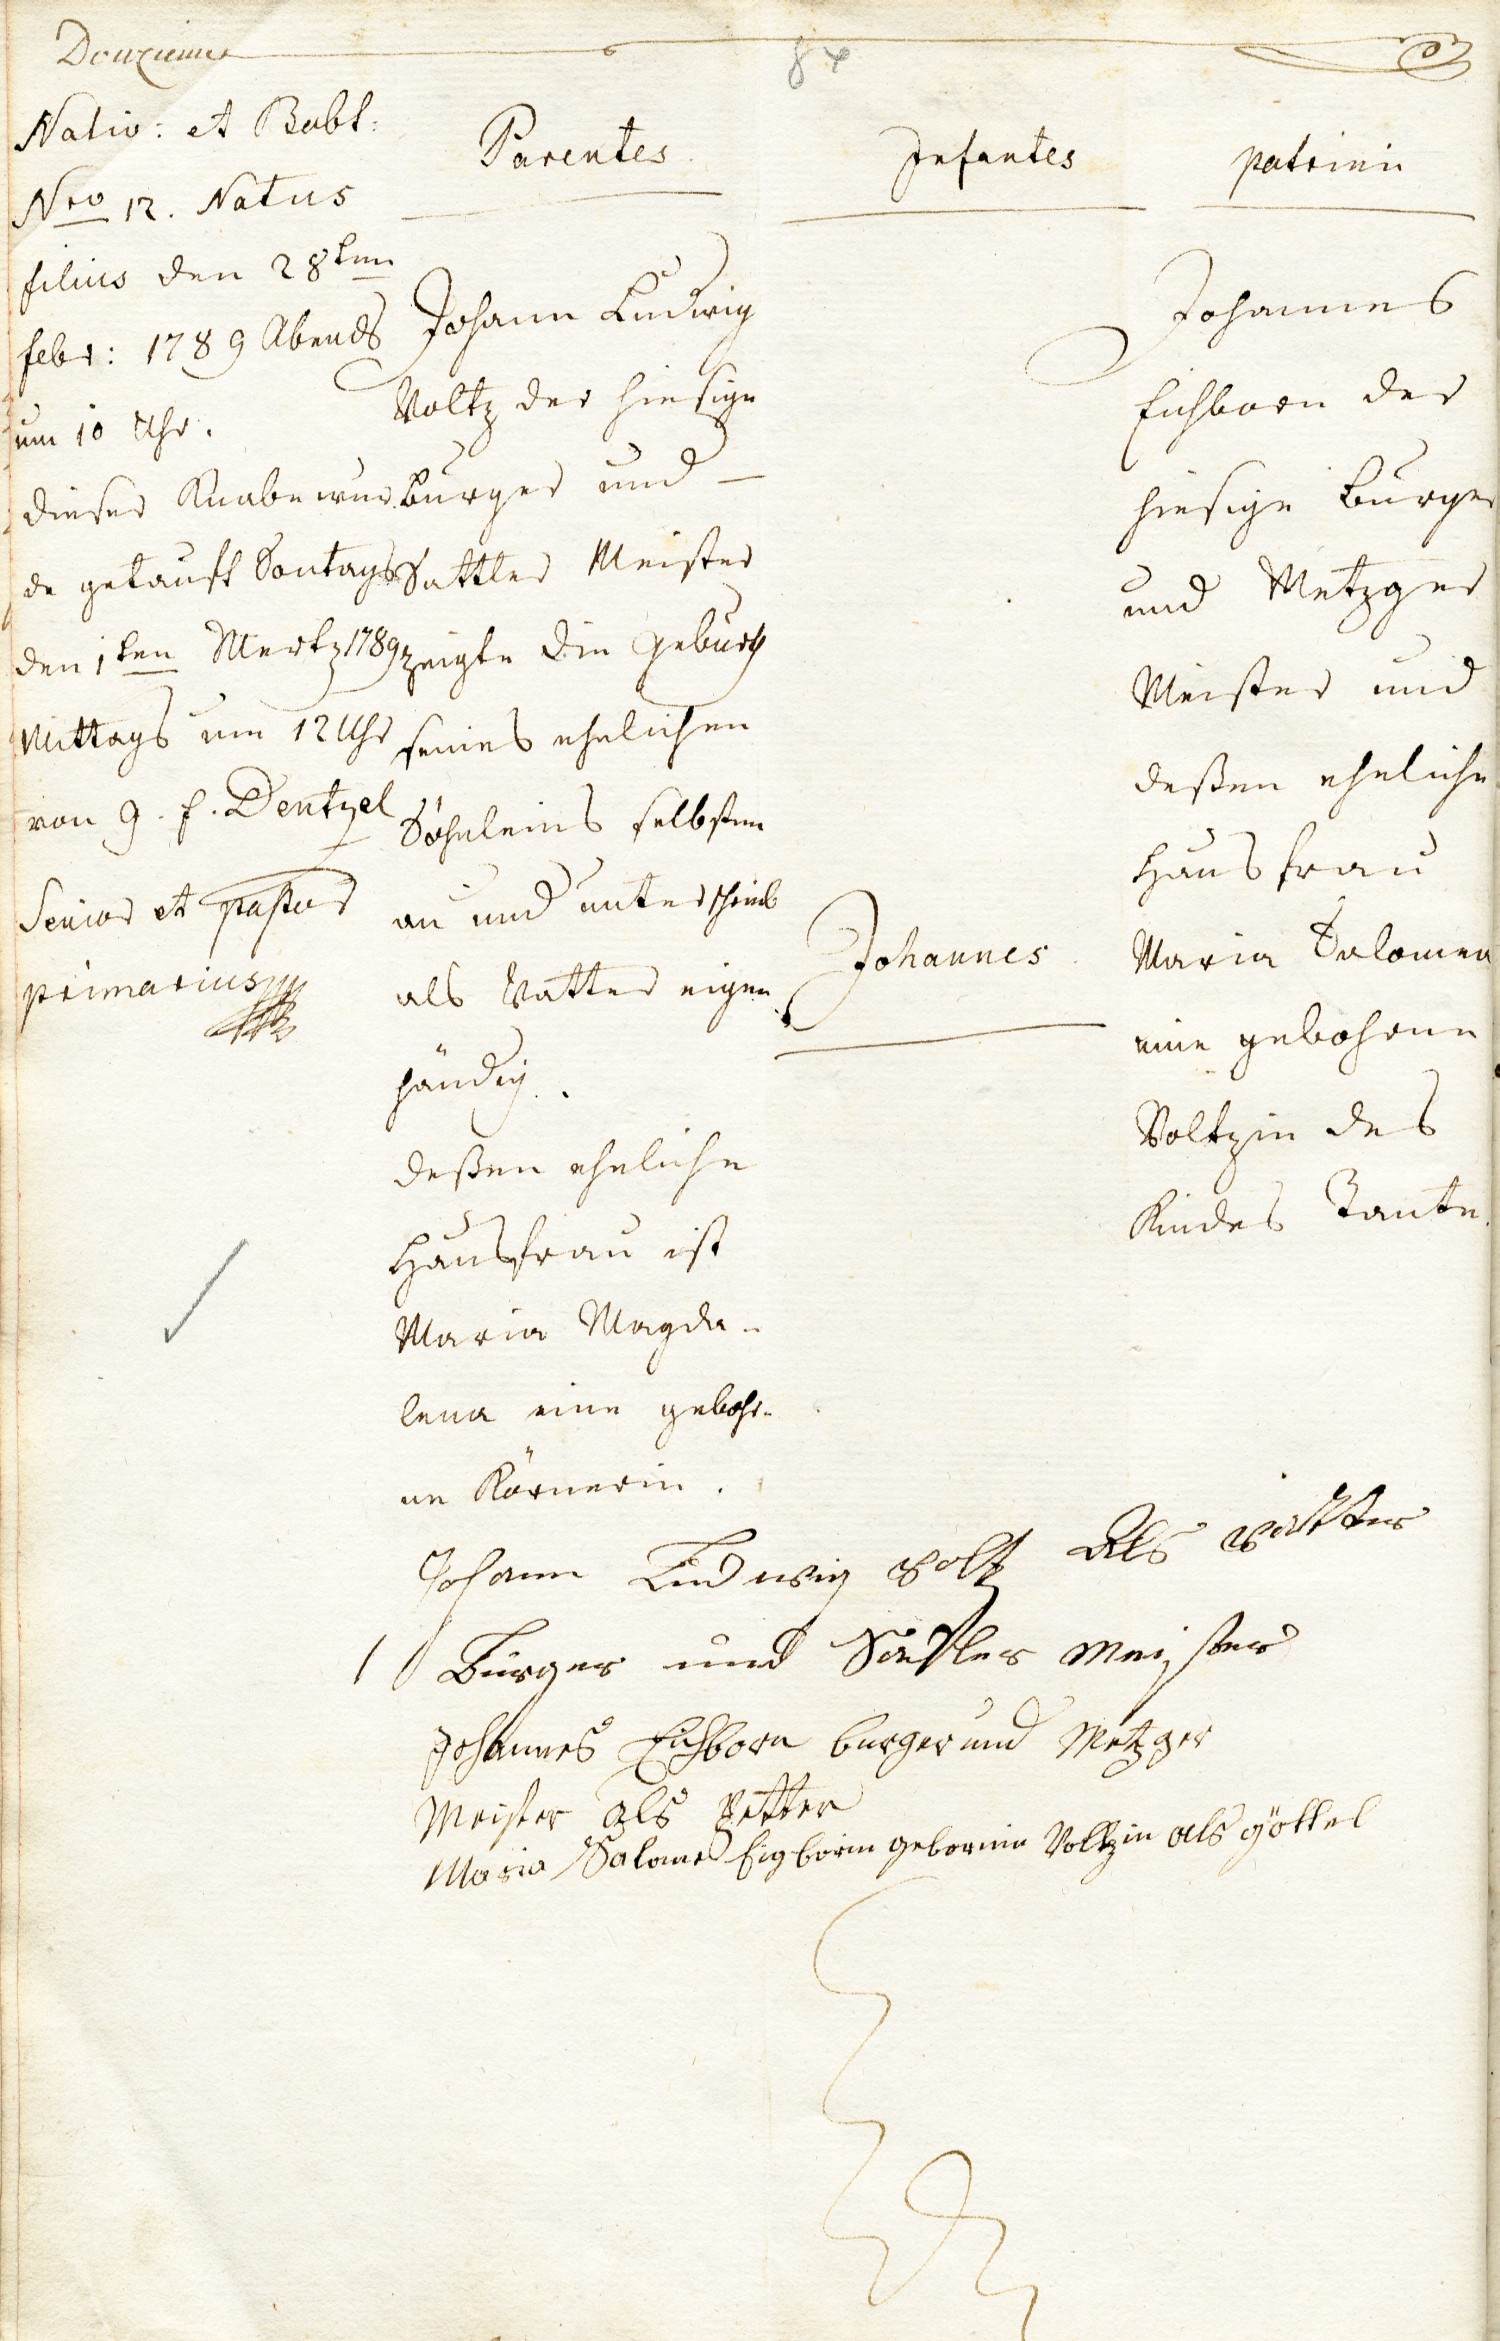 Douzieme
84
Nativ: et Babt:
Nro 12. Natus
filius den 28ten
febr: 1789 Abends
um 10 Uhr.
dieser Knabe wur
de getauft Sontags
den 1ten Mertz 1789
Mittags um 12 Uhr
von g. f. Dentzel
Senior et pastor
primarius
Parentes
Johann Ludwig
Voltz der hiesige
burger und
Sattler Meister
zeigte die geburth
seines ehelichen
Söhnleins selbsten
an und unterschrieb
als Vatter eigen
händig.
deßen eheliche
Hausfrau ist
Maria Magda-
lena eine gebohr-
ne Körnerin.
Infantes
Johannes
patrini
Johannes
Eichborn der
hiesige burger
und Metzger
Meister und
deßen eheliche
Hausfrau
Maria Salomea
eine gebohrne
Voltzin des
Kindes Tante.
Johann Ludwig Voltz Als Vatter
Burger und Sattler Meister
Johannes Eichborn burger und Metzger
Meister als Petter
Maria Salome Eigborin gebornin Voltzin als göttel